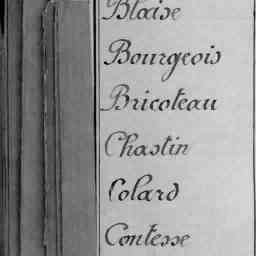 Blaise
Bourgeois
Bricoteau
Chastin
Colard
Contesse